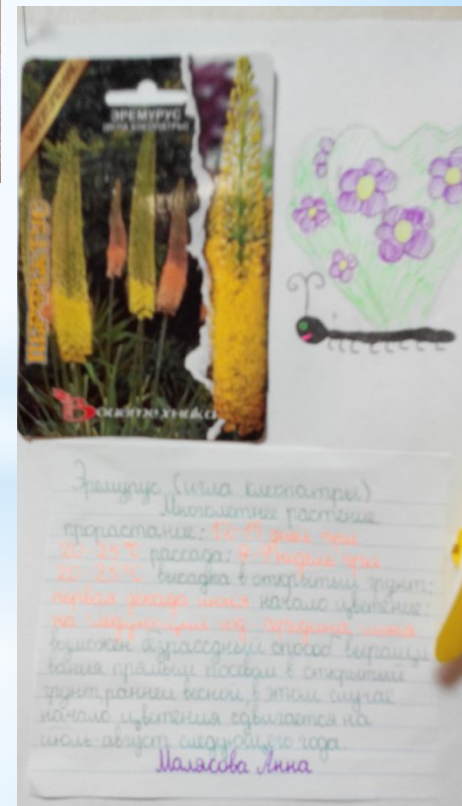 ЭРЕМУРУС
ИГЛА КЛЕОПАТРЫ
Биотехника
Эремурус (игла клеопатры)
Многолетнее растение
прорастание: 12-15 дней при
20-25°C рассада: при
20-25°C высадка в открытый грунт:
первая декада июня начало цветение:
на следующий год середина июня
возможен безрассадный способ выращи
вания прямым посевом в открытый
грунт ранней весной, в этом случае
начало цветения сдвигается на
июль-август следующего года.
Малясова Анна